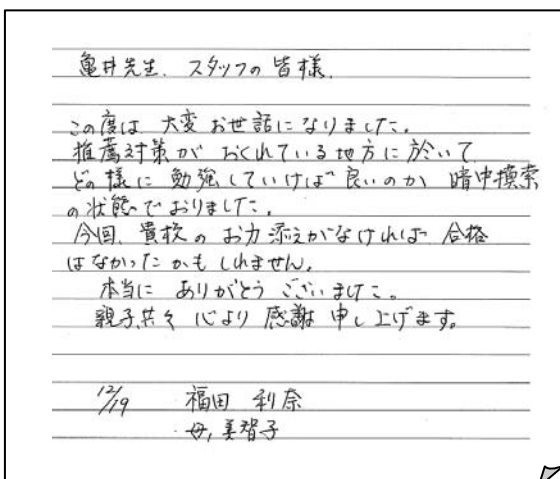 亀井先生、スタッフの皆様、
この度は 大変 お世話になりました。
推薦対策が おくれている地方に於いて
どの様に 勉強していけば 良いのか 暗中模索
の状態でおりました。
今回、貴校の お力添えがなければ 合格
はなかったかもしれません。
本当に ありがとう ございました。
親子共々 心より 感謝 申し上げます。
12/19 福田 利奈
母, 美智子